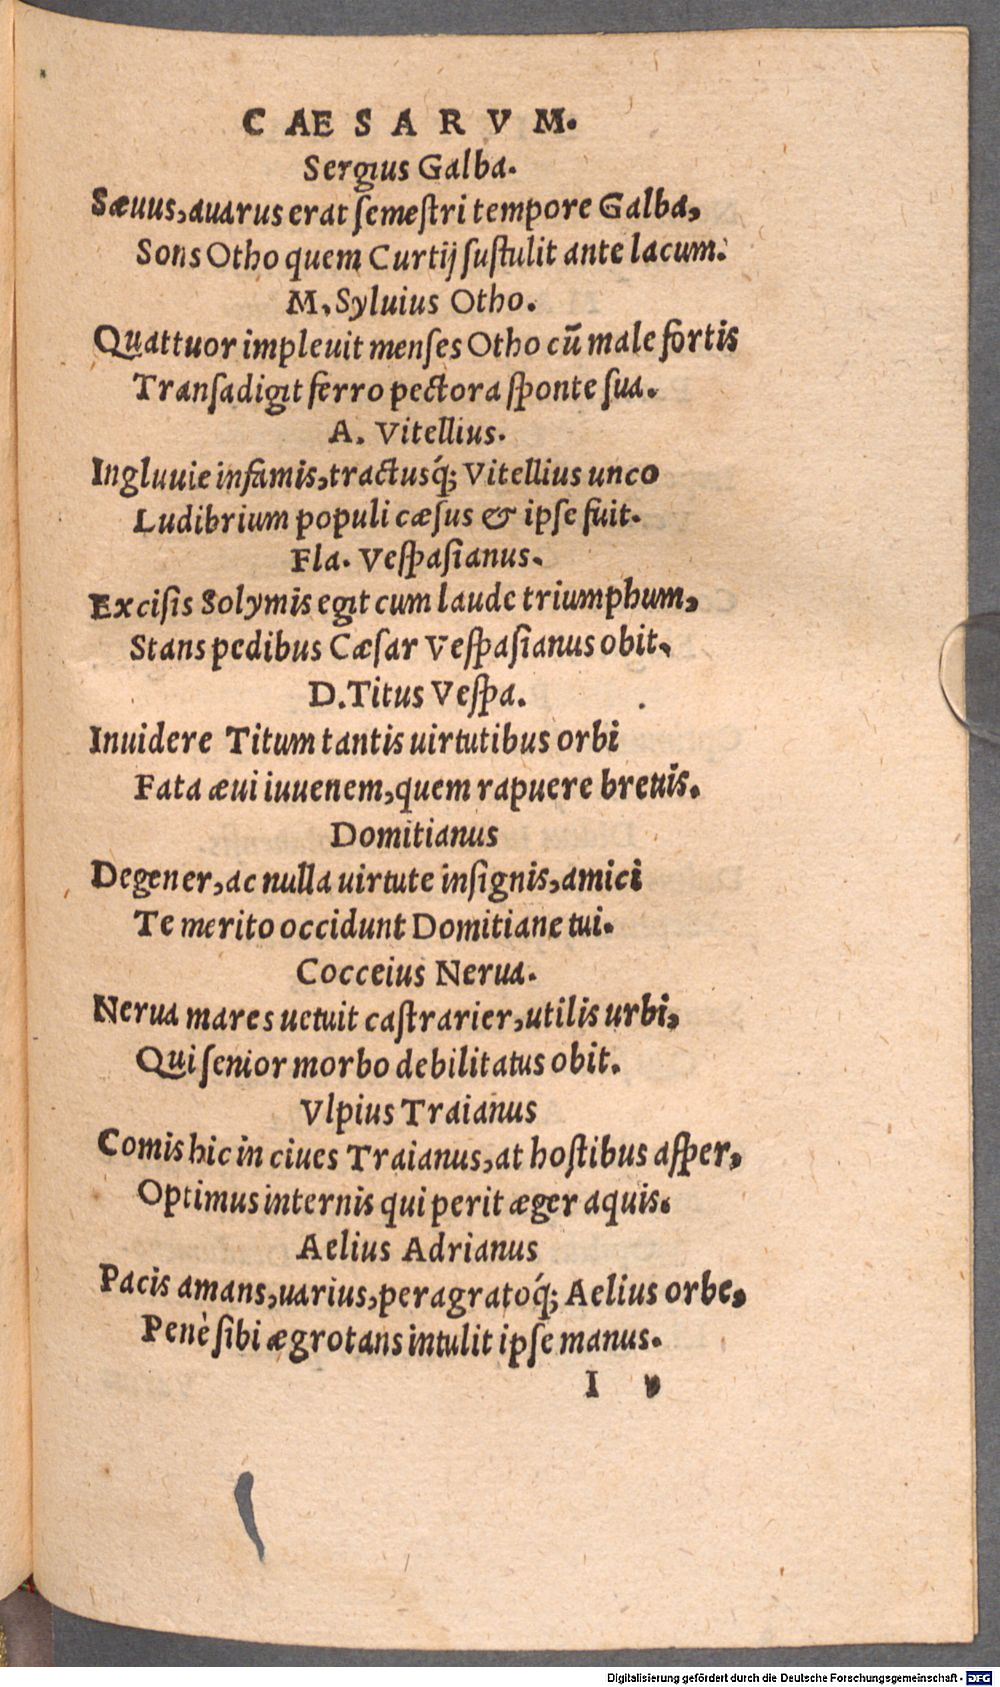 C AE S A R V M.
Sergius Galba.
Sæuus, auarus erat ſemeſtri tempore Galba,
Sons Otho quem Curtij ſuſtulit ante lacum.
M. Syluius Otho.
Quattuor impleuit menſes Otho cū male fortis
Tranſadigit ferro pectora ſponte ſua.
A. Vitellius.
Ingluuie infamis, tractusq́; Vitellius unco
Ludibrium populi cæſus & ipſe fuit.
Fla. Veſpaſianus.
Exciſis Solymis egit cum laude triumphum,
Stans pedibus Cæſar Veſpaſianus obit.
D. Titus Veſpa.
Inuidere Titum tantis uirtutibus orbi
Fata æui iuuenem, quem rapuere breuis.
Domitianus
Degener, ac nulla uirtute inſignis, amici
Te merito occidunt Domitiane tui.
Cocceius Nerua.
Nerua mares uetuit caſtrarier, utilis urbi,
Qui ſenior morbo debilitatus obit.
Vlpius Traianus
Comis hic in ciues Traianus, at hoſtibus aſper,
Optimus internis qui perit æger aquis.
Aelius Adrianus
Pacis amans, uarius, peragratoq́; Aelius orbe,
Penè ſibi ægrotans intulit ipſe manus.
I v
Digitalisierung gefördert durch die Deutsche Forschungsgemeinschaft - DFG